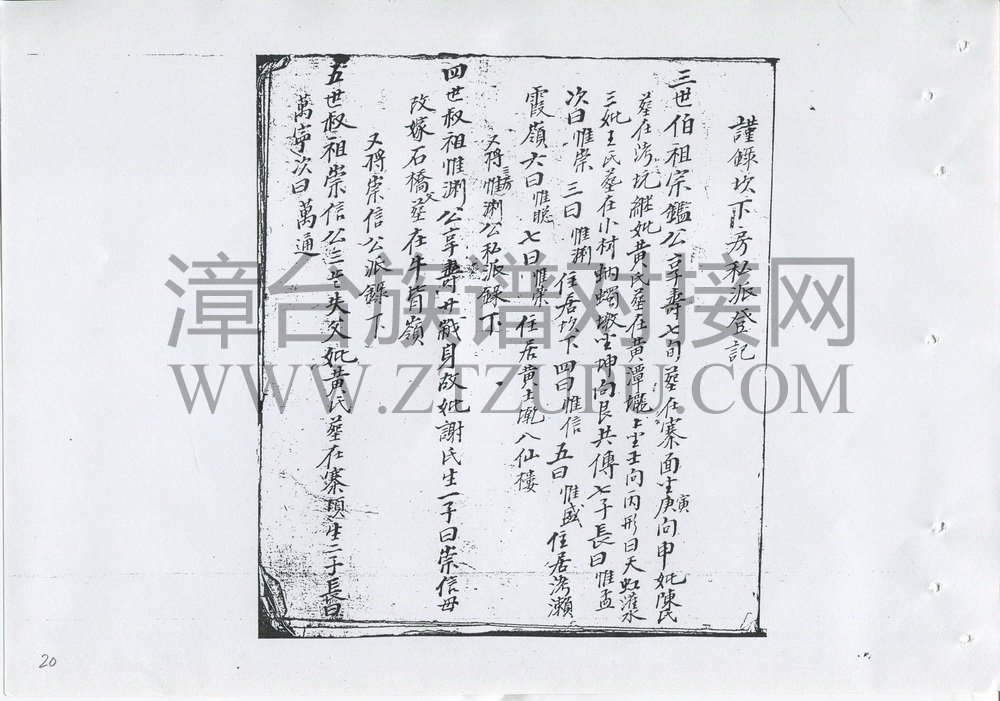 謹錄坎下房私派登記
三世伯祖宗鑑公享壽七旬葬在寨面坐庚寅向申妣陳氏
葬在湾坑継妣黄氏葬在黄潭壠上坐壬向丙形曰天虹灌水
三妣王氏葬在小材蚋蠋墩坐坤向艮共傳七子長曰惟孟
次曰惟崇 三曰惟渊住居坎下 四曰惟信 五曰惟盛住居湾瀬
霞嶺 六曰惟聪 七曰惟榮住居黄土墘八仙樓
又將三房惟渊公私派錄下
四世叔祖惟渊公享壽廿歲身故妣謝氏生一子曰崇信母
改嫁石橋父葬在牛背嶺
又將崇信公派錄下
五世叔祖崇信公三歲失父妣黄氏葬在寨頭生二子長曰
萬寧次曰萬通
漳台族谱对接网
WWW.ZTZUPU.COM
20